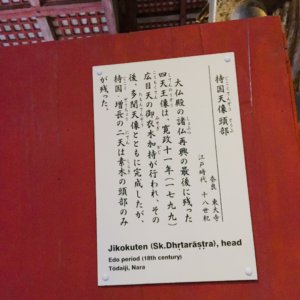 持国天像 頭部
じこくてんぞう とうぶ
奈良 東大寺
江戸時代 十八世紀
大仏殿の諸仏再興の最後に残った
四天王像は、寛政十一年(一七九九)
広目天の御衣木加持が行われ、その
後、多聞天像とともに完成したが、
持国・増長の二天は素木の頭部のみ
が残った。
Jikokuten (Sk.Dhṛtarāṣṭra), head
Edo period (18th century)
Tōdaiji, Nara